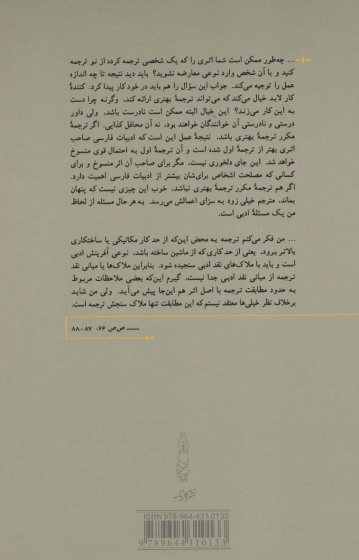 ... چه‌طور ممکن است شما اثری را که یک شخصی ترجمه کرده از نو ترجمه
کنید و با آن شخص وارد نوعی معارضه نشوید؟ باید دید نتیجه تا چه اندازه
عمل را توجیه می‌کند. جواب این سؤال را هم باید در خود کار پیدا کرد. کنندهٔ
کار لابد خیال می‌کند که می‌تواند ترجمهٔ بهتری ارائه کند، وگرنه چرا دست
به این کار می‌زند؟ این خیال البته ممکن است نادرست باشد، ولی داور
درستی و نادرستی آن خوانندگان خواهند بود، نه آن محافل کذایی. اگر ترجمهٔ
مکرر ترجمهٔ بهتری باشد، نتیجهٔ عمل این است که ادبیات فارسی صاحب
اثری بهتر از ترجمهٔ اول شده است و آن ترجمهٔ اول به احتمال قوی منسوخ
خواهد شد. این جای دلخوری نیست، مگر برای صاحب آن اثر منسوخ و برای
کسانی که مصلحت اشخاص برای‌شان بیشتر از ادبیات فارسی اهمیت دارد.
اگر هم ترجمهٔ مکرر ترجمهٔ بهتری نباشد، خوب این چیزی نیست که پنهان
بماند، مترجم خیلی زود به سزای اعمالش می‌رسد. به هر حال مسئله از لحاظ
من یک مسئلهٔ ادبی است.
... من فکر می‌کنم ترجمه به محض این‌که از حد کار مکانیکی یا ساختکاری
بالاتر برود، یعنی از حد کاری که از ماشین ساخته باشد، نوعی آفرینش ادبی
است و باید با ملاک‌های نقد ادبی سنجیده شود. بنابراین ملاک‌ها یا مبانی نقد
ترجمه از مبانی نقد ادبی جدا نیست، گیرم این‌که بعضی ملاحظات مربوط
به حدود مطابقت ترجمه با اصل اثر هم این‌جا پیش می‌آید. ولی من شاید
برخلاف نظر خیلی‌ها معتقد نیستم که این مطابقت تنها ملاک سنجش ترجمه است.
ص‌ص ۶۶، ۸۷-۸۸
نشر کارنامه
ISBN 978-964-431-013-3
9789644310133